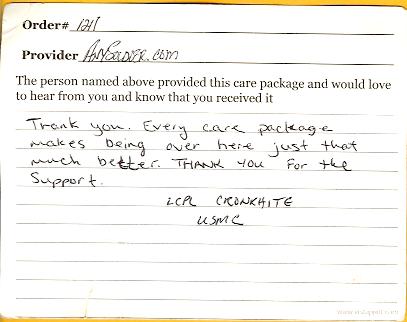 Order# 1211
Provider AnySoldier.com
The person named above provided this care package and would love
to hear from you and know that you received it
Thank you. Every care package
makes being over here just that
much better. THANK YOU For the
Support.
LCPL CRONKHITE
USMC